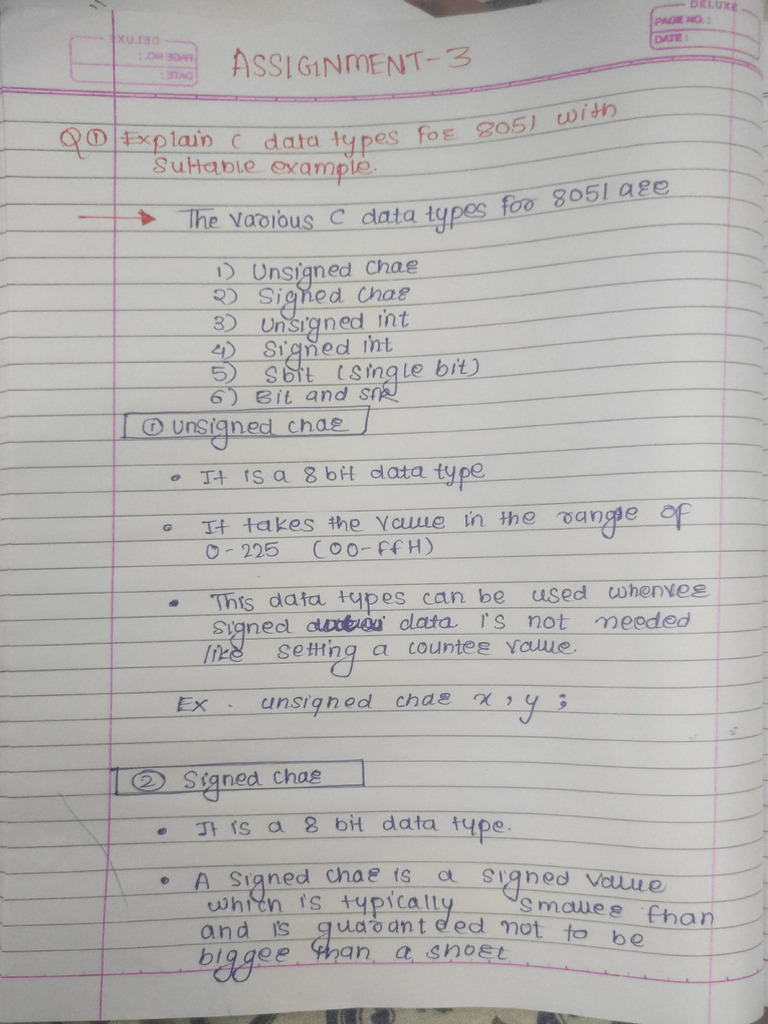 DELUXE
PAGE NO.:
DATE:
DELUXE
PAGE NO.:
DATE:
ASSIGNMENT-3
Q① Explain C data types for 8051 with
Suitable example.
→ The various C data types for 8051 are
1) Unsigned Char
2) Signed Char
3) Unsigned int
4) Signed int
5) Sbit (single bit)
6) Bit and sfr
① unsigned char
• It is a 8 bit data type
• It takes the value in the range of
0-225 (00-FFH)
• This data types can be used whenver
signed data is not needed
like setting a counter value.
Ex. unsigned char x, y ;
② Signed char
• It is a 8 bit data type.
• A signed char is a signed value
which is typically smaller than
and is guaranteed not to be
bigger than a short